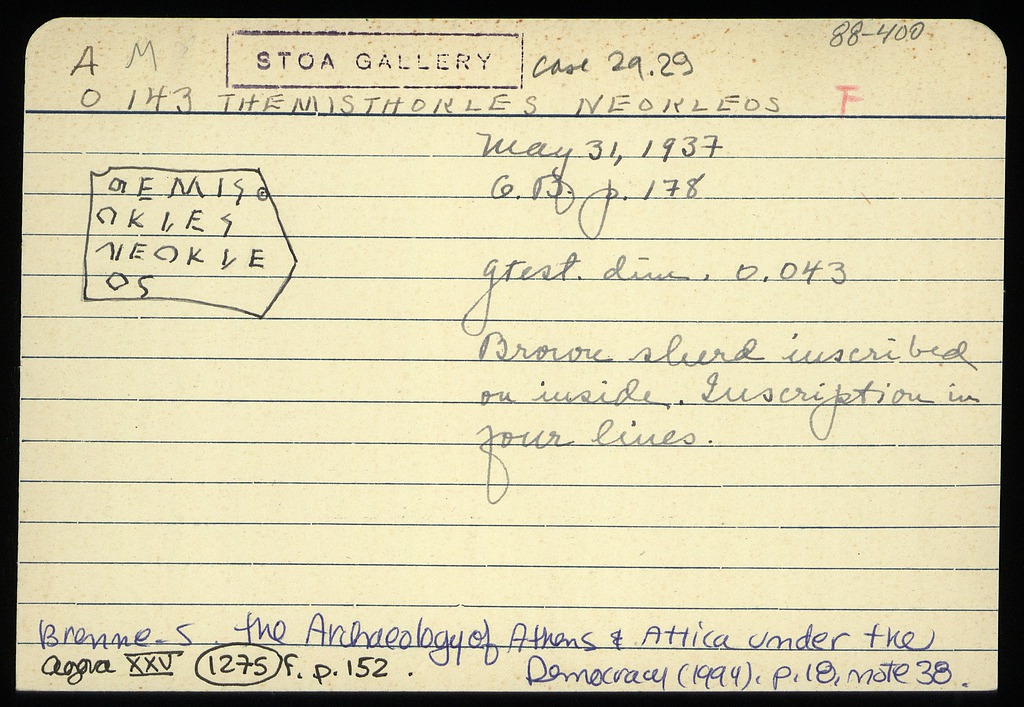 88-400
A M STOA GALLERY Case 29.29
O 143 THEMISTHOKLES NEOKLEOS F
May 31, 1937
p. 178
ΘEMIS
OKLES
NEOKLE
OS
gtest. dim. 0.043
Brown sherd inscribed
on inside. Inscription in
four lines.
Brenne-S. the Archaeology of Athens & Attica under the
Democracy (1994). p.18, note 38.
agora XXV 1275 f. p. 152.